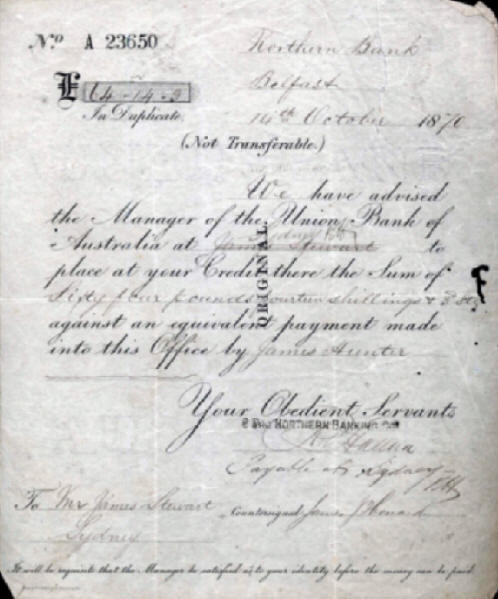 No A 23650
Northern Bank
£ 64-14-3
Belfast
In Duplicate.
14th October 1870
(Not Transferable.)
We have advised
the Manager of the Union Bank of
Sydney
Australia at James Stewart to
place at your Credit there the Sum of
Sixty four pounds fourteen shillings & 3
against an equivalent payment made
into this Office by James Hunter
ORIGINAL
Your Obedient Servants
Pro NORTHERN BANKING Co
Hanna
Payable at Sydney
To Mr James Stewart
Countersigned James
Sydney
It will be requisite that the Manager be satisfied as to your identity before the money can be paid.